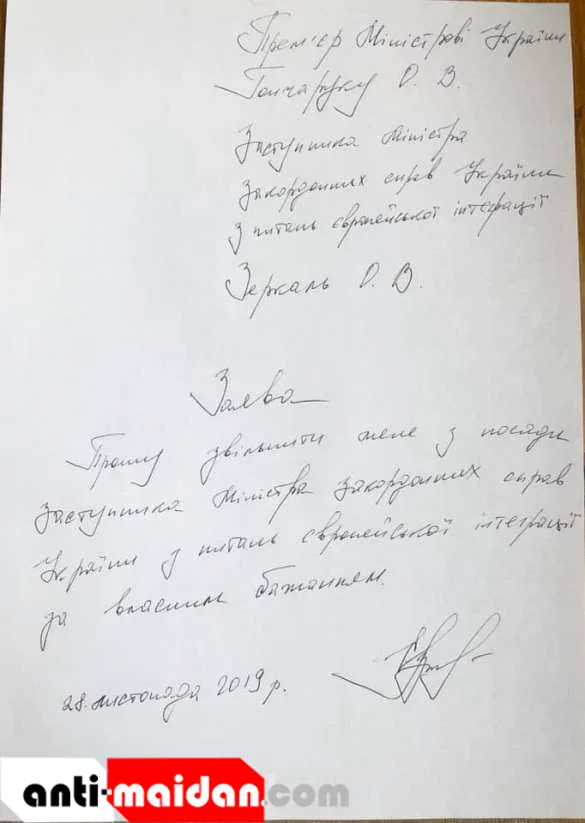 Прем'єр Міністрові України
Гончаруку О. В.
Заступника Міністра
Закордонних справ України
з питань європейської інтеграції
Зеркаль О. В.
Заява
Прошу звільнити мене з посади
Заступника Міністра Закордонних справ
України з питань європейської інтеграції
за власним бажанням.
28. листопада 2019 р.
anti-maidan.com